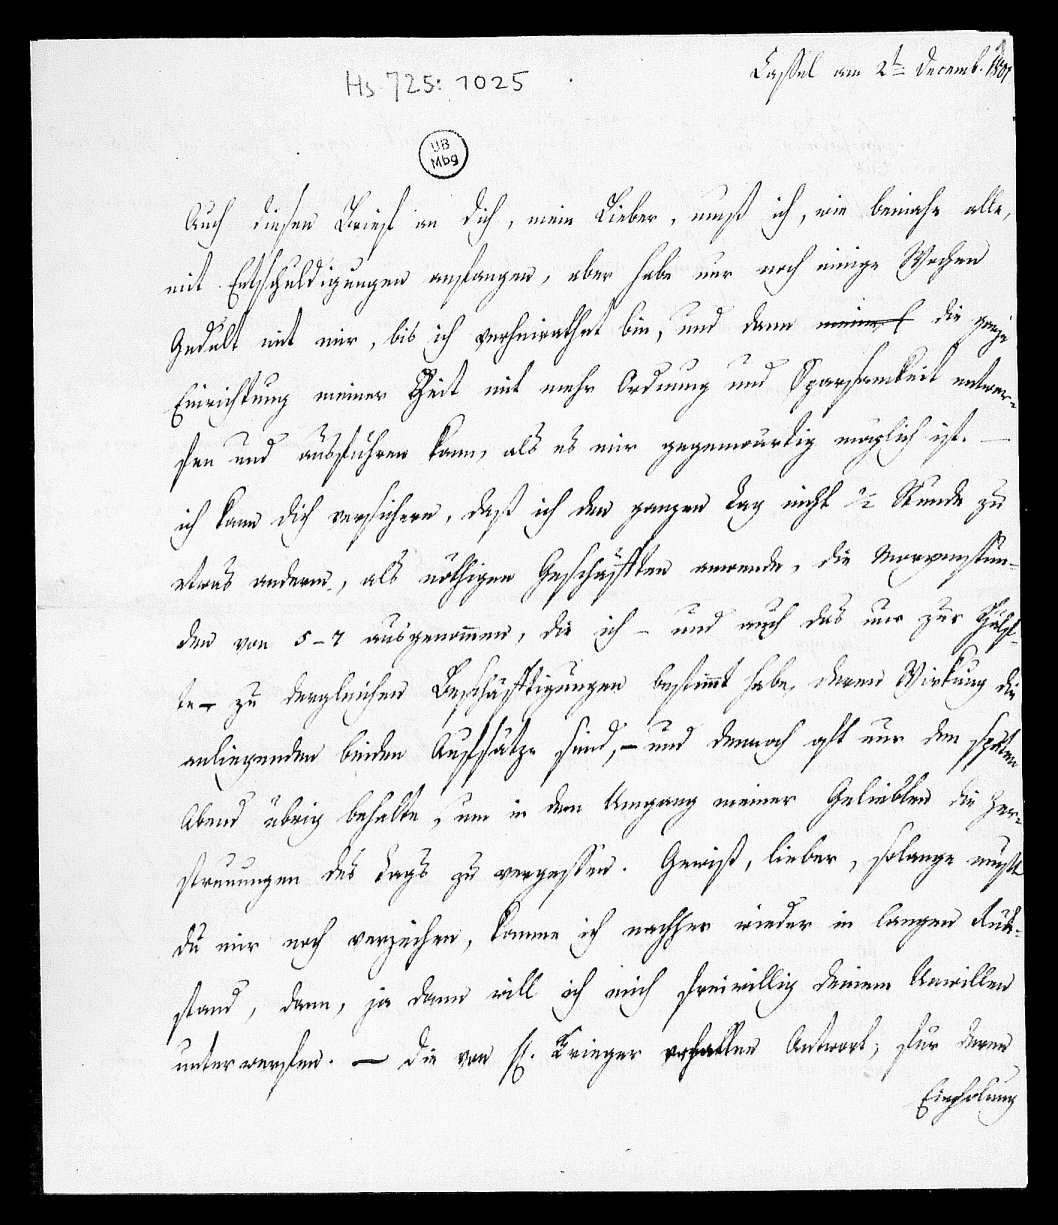 Hs. 725: 1025
Cassel am 2t= Decemb. 1801
UB
Mbg
Auch diesen Brief an dich, mein Lieber, muß ich, wie beinahe alle,
mit Entschuldigungen anfangen, aber habe nur noch einige Wochen
Gedult mit mir, bis ich verheirathet bin, und dann die ganze
Einrichtung meiner Zeit mit mehr Ordnung und Sparsamkeit entwer-
fen und ausführen kann, als es mir gegenwärtig möglich ist. —
ich kann dich versichern, daß ich den ganzen Tag nicht 1/2 Stunde zu
etwas anderm, als nöthigen Geschäfften anwende, die Morgenstun-
den von 5-7 ausgenommen, die ich – und auch das nur zur Hälf-
te – zu dergleichen Beschäfftigungen bestimmt habe, deren Wirkung die
anliegenden beiden Aufsätze sind, – und dennoch oft nur den späten
Abend übrig behalte, um in dem Umgang meiner Geliebten die Zer-
streuungen des Tags zu vergessen. Gewiß, lieber, solange mußt
du mir noch verzeihen, komme ich nachher wieder in langen Rük-
stand, dann, ja dann will ich mich freiwillig deinem Unwillen
unterwerfen. — Die von H. Krieger erhaltene Antwort, für deren
Einholung